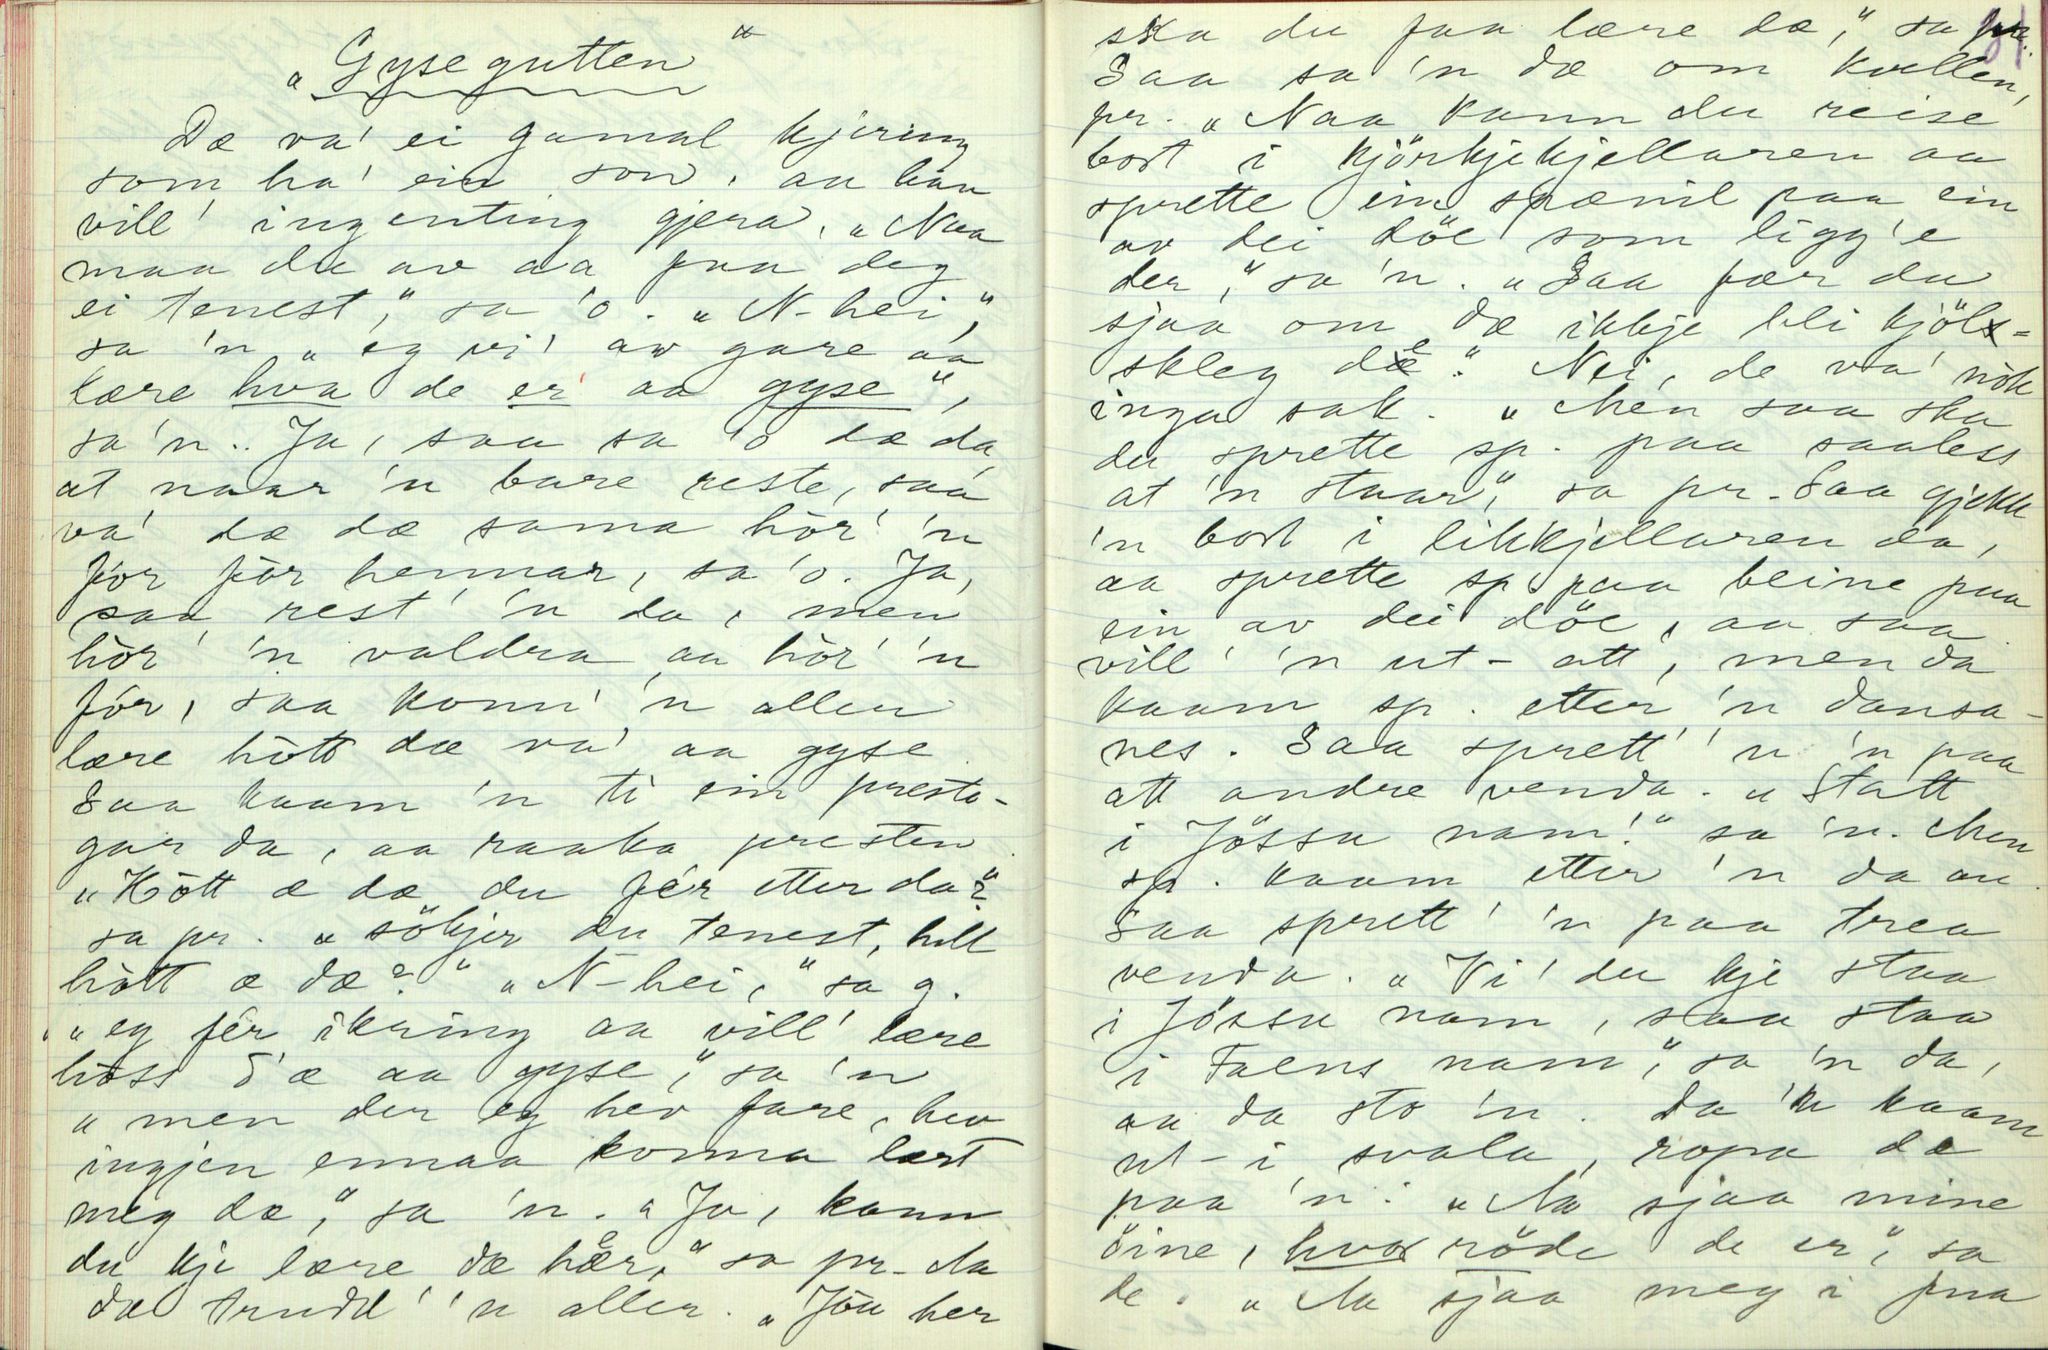 „Gysegutten"
Dæ va' ei gamal kjering
som ha' ein son, aa han
vill' ingenting gjera. „Naa
maa du av aa faa deg
ei tenest," sa 'o. „N-hei,"
sa 'n „eg vi' av gare aa
lære hva de er aa gyse",
sa 'n. Ja, saa sa 'o dæ da,
at naar 'n bare reste, saa
va' dæ dæ sama hòr' 'n
fór fòr hennar, sa 'o. Ja,
saa rest' 'n da, men
hòr' 'n valdra aa hòr' 'n
fór, saa konn' 'n aller
lære hòtt dæ va' aa gyse.
Saa kaam 'n ti ein presta-
gar da, aa raaka presten.
„Hòtt æ dæ du fér etter da?"
sa pr. „söhjer du tenest, hell
hòtt æ dæ?" „N-hei," sa g.
„eg fér ikring aa vill' lære
hòss d'æ aa gyse," sa 'n
„men der eg hev fare, hev
ingjen ennaa konna lært
meg dæ," sa 'n. „Ja, kann
du kje lære dæ her," sa pr. Aa
dæ trudd' 'n aller. „Jöu her
ska du faa lære dæ," sa pr.
Saa sa 'n dæ om kvellen,
pr. „Naa kann du reise
bort i kjörkjekjellaren aa
sprette ein spænil paa ein
av dei döe som ligg'e
der," sa 'n. „Saa fær du
sjaa om dæ ikkje bli kjöl-
sleg de." Nei, de va' nòk
inga sak. „Men saa ska
du sprette sp. paa saaless
at 'n staar," sa pr. Saa gjekk
'n bort i likkjellaren da,
aa sprette sp paa beine paa
ein av dei döe, aa saa
vill' 'n ut-att, men da
kaam sp. etter 'n dansa-
nes. Saa sprett' 'n 'n paa
att andre venda. „Statt
i Jössu nam!" sa 'n. Men
sp. kaam etter 'n da au.
Saa sprett' 'n paa trea
venda. „Vi' du kje staa
i Jössu nam, saa staa
i Faens nam," sa 'n da,
aa da sto 'n. Da 'n kaam
ut-i svala, ropa dæ
paa 'n: „Aa sjaa mine
öine, hvor röde de er", sa
de. „Aa sjaa meg i fua